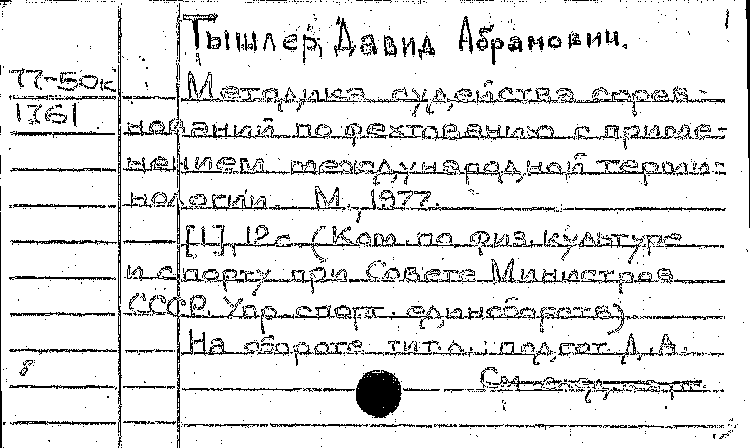 Тышлер, Давид Абрамович.
П-50к
1761
Методика судейства сорев-
нований по фехтованию с приме-
нением международной терми-
нологии. М., 1977.
[1], 12 с. (Ком. по физ. культуре
и спорту при Совете Министров
СССР. Упр. спорт. единоборств)
На обороте тит. л.: подгот. Д. А.
См. след. карт.
8